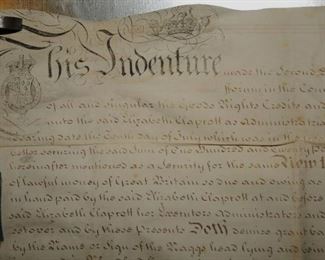 This Indenture made the Second
of all and singular the Goods Rights Credits and
unto the said Elizabeth Claproll as Administratrix
bearing date the Tenth Day of July which was in the
for securing the said Sum of One Hundred and Twenty
hereinafter mentioned as a Security for the same Now
of lawful money of Great Britain so due and owing as
in hand paid by the said Elizabeth Claproll at and before
said Elizabeth Claproll her Executors Administrators and
setover and by these Presents Doth demise grant
by the Name or Sign of the Naggs head lying and